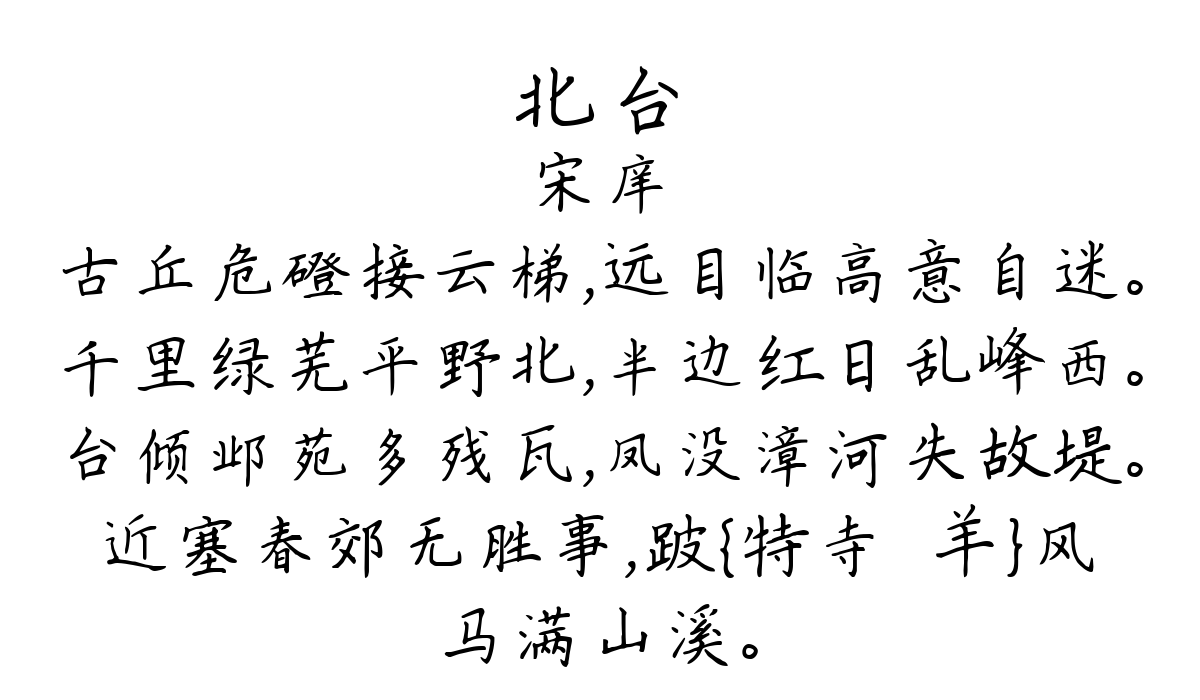 北台
宋庠
古丘危磴接云梯,远目临高意自迷。
千里绿芜平野北,半边红日乱峰西。
台倾邺苑多残瓦,凤没漳河失故堤。
近塞春郊无胜事,跛{特寺 羊}风
马满山溪。